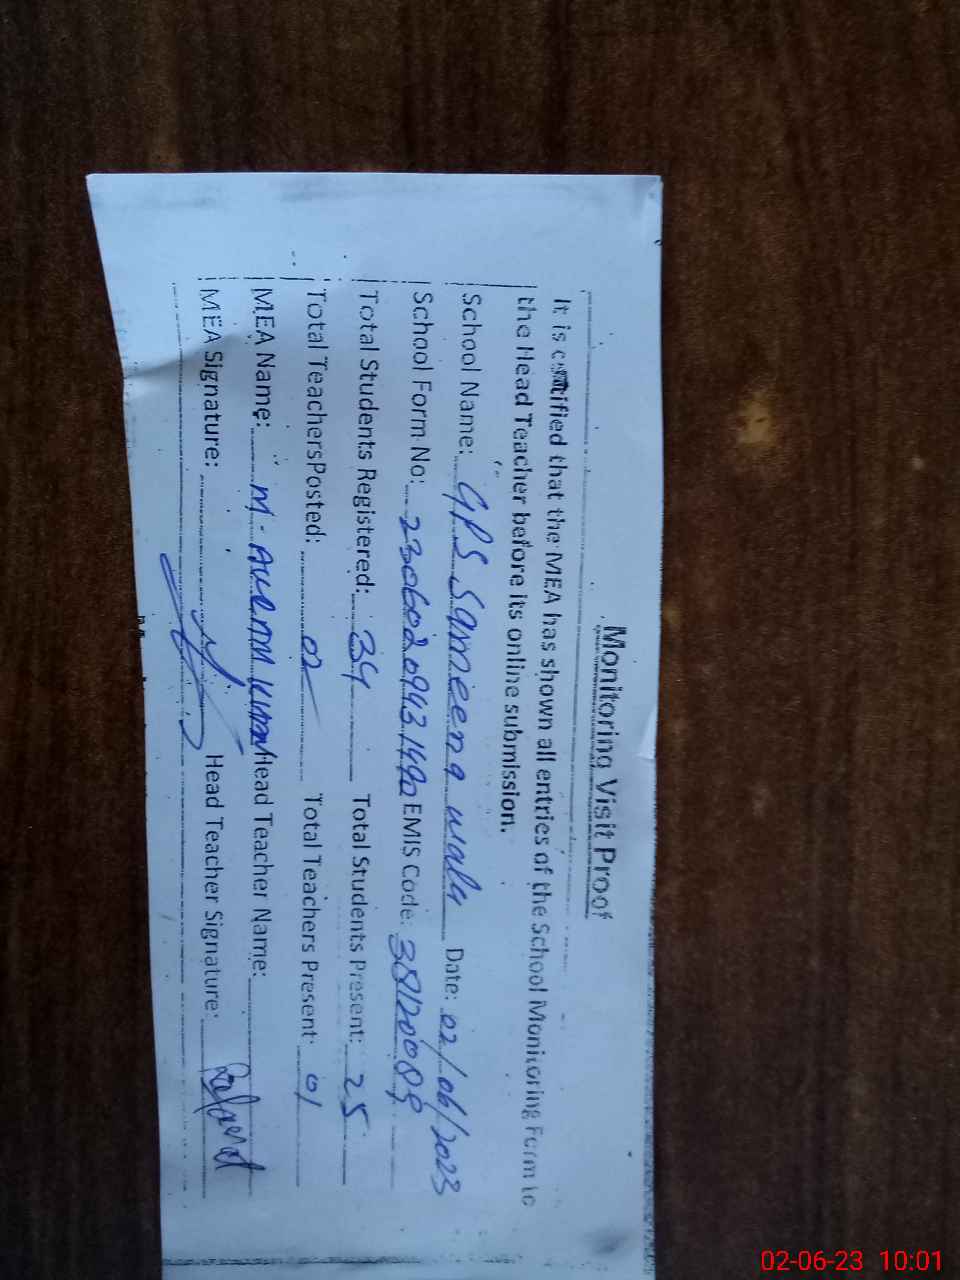 Monitoring Visit Proof
It is certified that the MEA has shown all entries of the School Monitoring Form to
the Head Teacher before its online submission.
School Name: GPS Sameena wala Date: 02/06/2023
School Form No: EMIS Code:
Total Students Registered: 34 Total Students Present: 25
Total TeachersPosted: 02 Total Teachers Present: 01
MEA Name: M. Head Teacher Name:
MEA Signature: Head Teacher Signature:
02-06-23 10:01